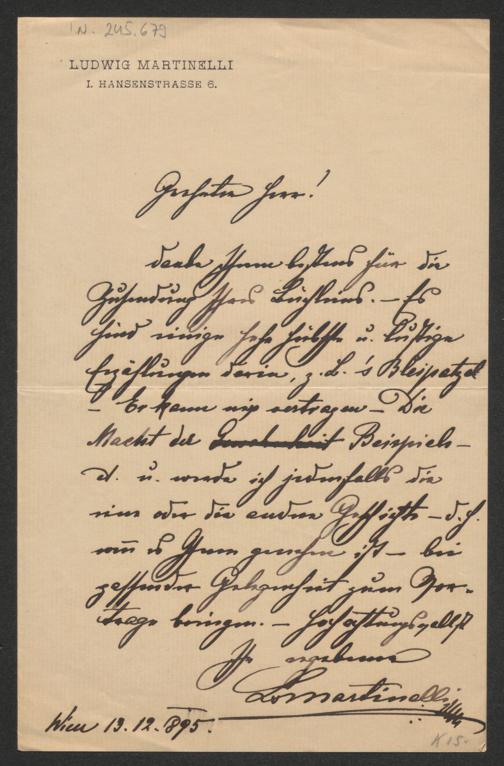 I.N. 245.679
LUDWIG MARTINELLI
I. HANSENSTRASSE 6.
Geehrter Herr!
danke Ihnen bestens für die
Zusendung Ihres Büchleins. – Es
sind einige sehr hübsche u. lustige
Erzählungen darin, z. B. 's Bleipatzel
– Er kann nix vertragen – Die
Macht des Beispiels –
d. u. werde ich jedenfalls die
eine oder die andere Geschichte – d. h.
wenn es Ihnen genehm ist – bei
passender Gelegenheit zum Vor-
trage bringen. – Hochachtungsvollst
Ihr ergebener
L. Martinelli
Wien 13.12.895.
K 15.-